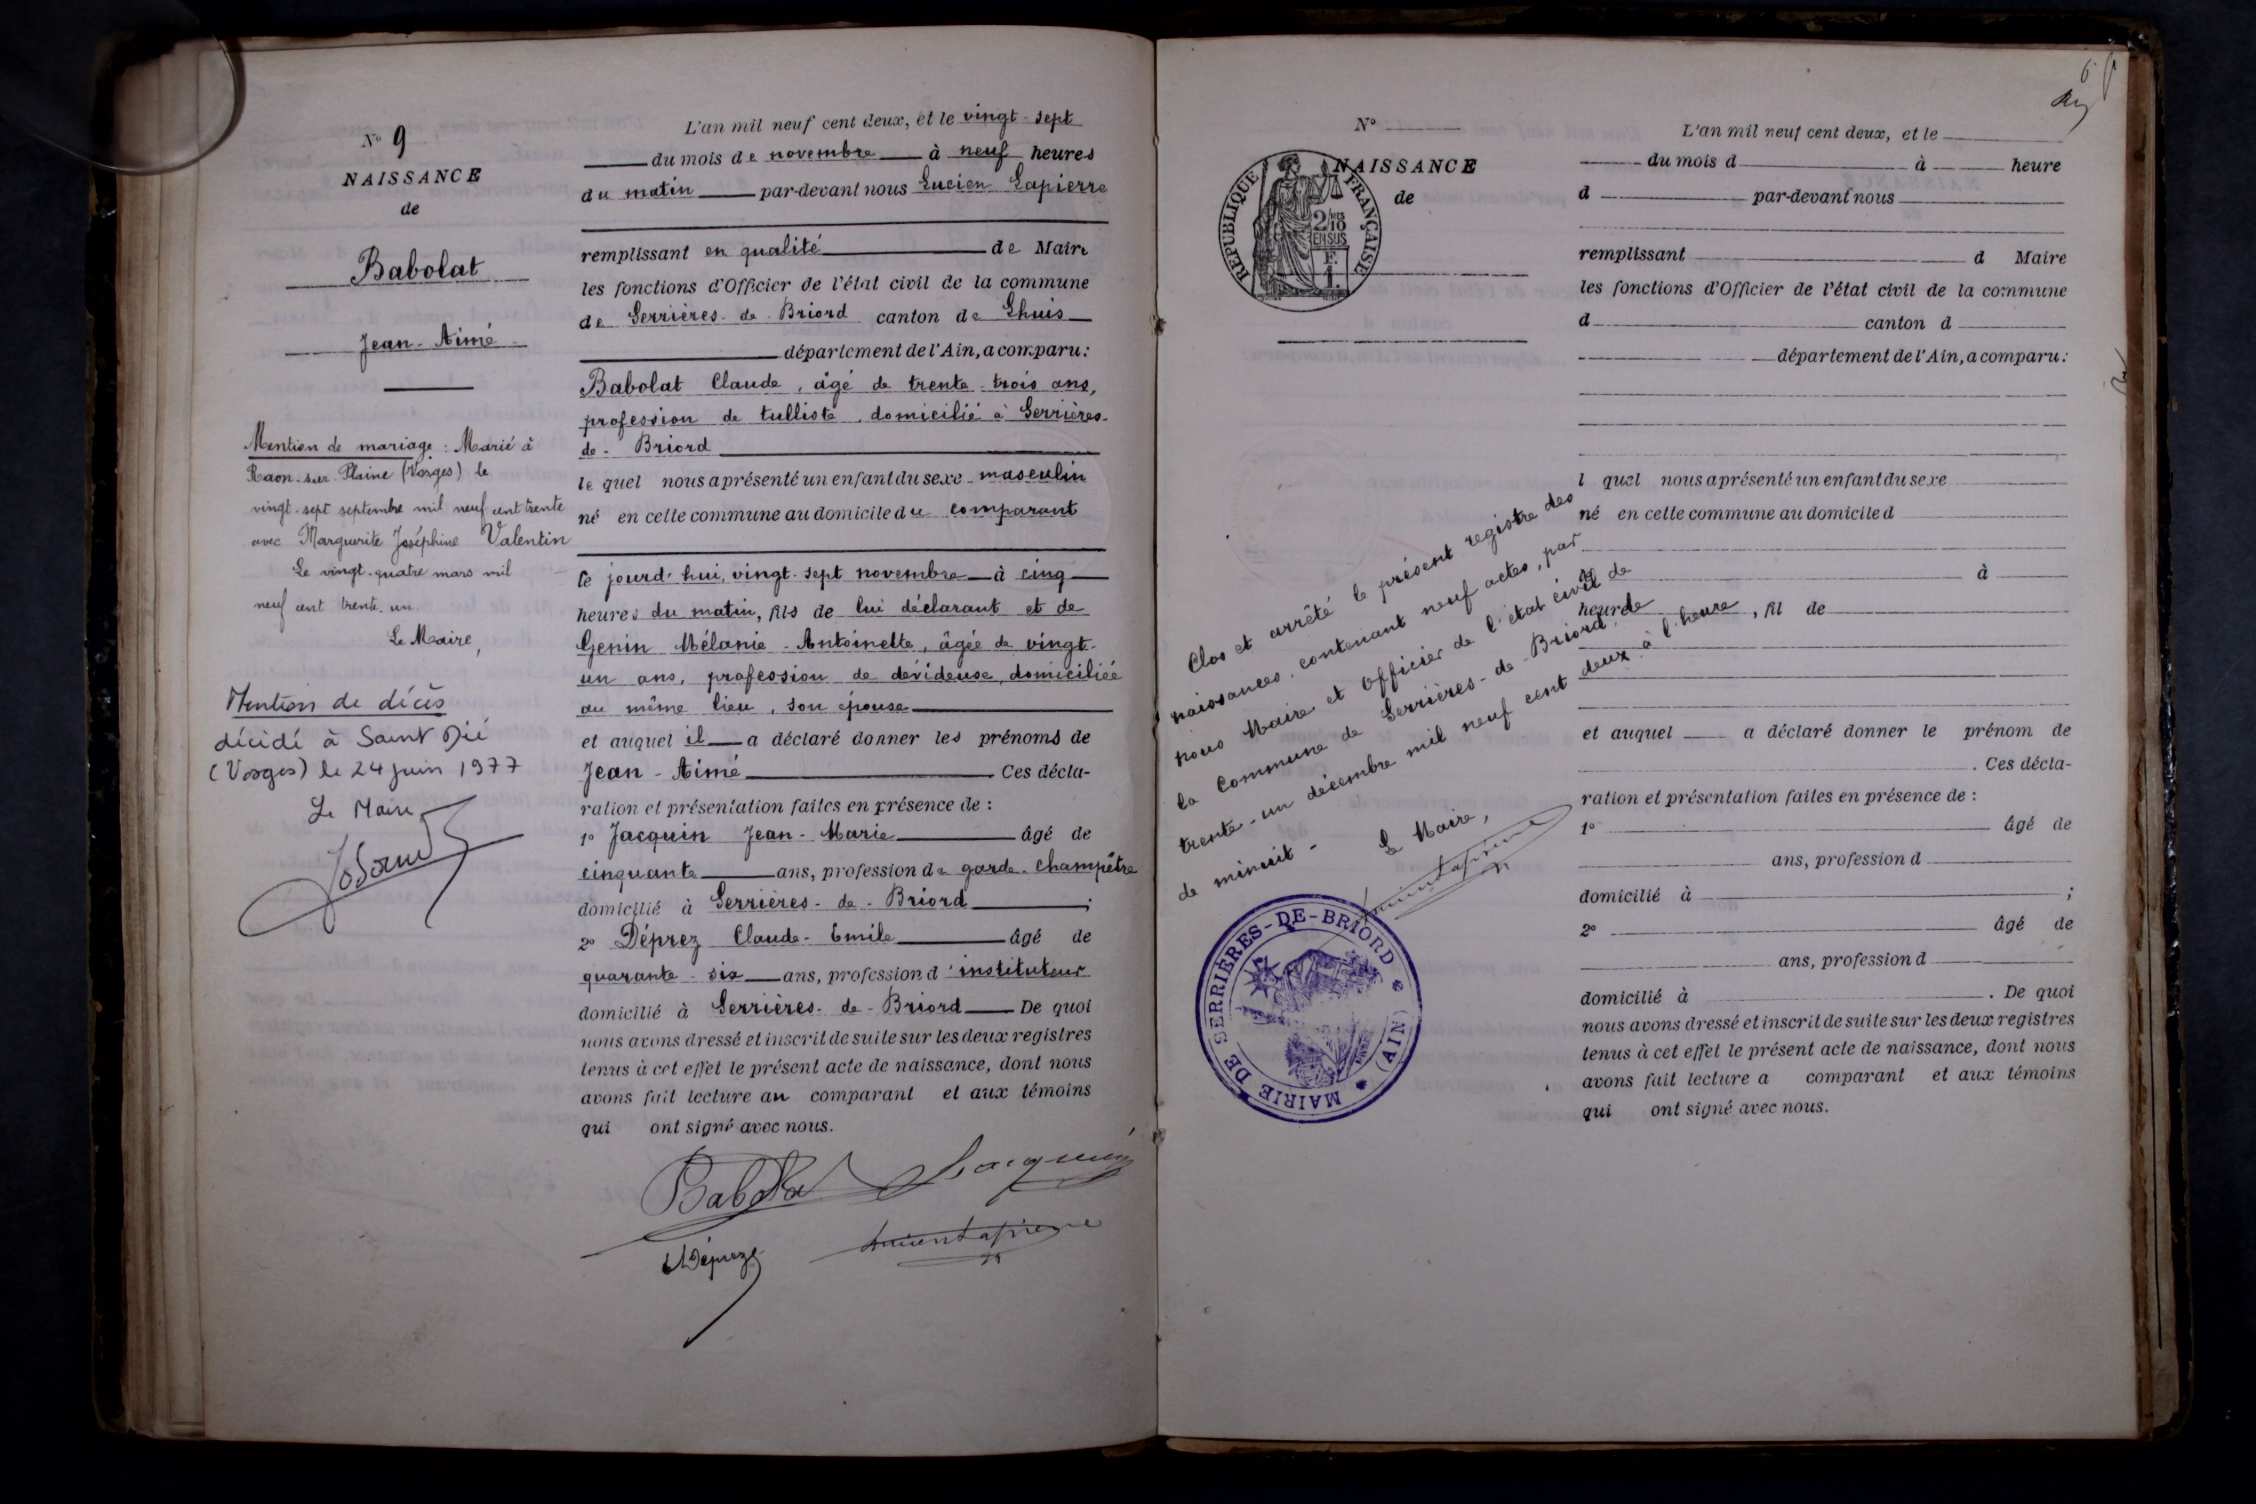 N° 9
NAISSANCE
de
Babolat
Jean-Aimé
Mention de mariage : Marié à
Raon-sur-Plaine (Vosges) le
vingt-sept septembre mil neuf cent trente
avec Marguerite Joséphine Valentin
Le vingt-quatre mars mil
neuf cent trente-un
Le Maire,
Mention de décès
décédé à Saint Dié
(Vosges) le 24 juin 1977
Le Maire
L'an mil neuf cent deux, et le vingt-sept
du mois de novembre à neuf heures
du matin par-devant nous Lucien Lapierre
remplissant en qualité de Maire
les fonctions d'Officier de l'état civil de la commune
de Serrières-de-Briord canton de Lhuis
département de l'Ain, a comparu :
Babolat Claude, âgé de trente-trois ans,
profession de tulliste, domicilié à Serrières-
de-Briord
lequel nous a présenté un enfant du sexe masculin
né en cette commune au domicile du comparant
ce jourd'hui, vingt-sept novembre à cinq
heures du matin, fils de lui déclarant et de
Genin Mélanie-Antoinette, âgée de vingt-
un ans, profession de dévideuse, domiciliée
au même lieu, son épouse
et auquel il a déclaré donner les prénoms de
Jean-Aimé Ces décla-
ration et présentation faites en présence de :
1° Jacquin Jean-Marie âgé de
cinquante ans, profession de garde-champêtre
domicilié à Serrières-de-Briord ;
2° Déprez Claude-Emile âgé de
quarante-six ans, profession d'instituteur
domicilié à Serrières-de-Briord De quoi
nous avons dressé et inscrit de suite sur les deux registres
tenus à cet effet le présent acte de naissance, dont nous
avons fait lecture au comparant et aux témoins
qui ont signé avec nous.
Babolat Jacquin
Déprez Lucien Lapierre
N°
NAISSANCE
de
RÉPUBLIQUE FRANÇAISE
2/10
EN SUS
F.
1.
Clos et arrêté le présent registre des
naissances, contenant neuf actes, par
nous Maire et Officier de l'état civil de
la Commune de Serrières-de-Briord, le
trente-un décembre mil neuf cent deux à l'heure
de minuit -
Le Maire,
Lucien Lapierre
MAIRIE DE SERRIÈRES-DE-BRIORD (AIN)
6
L'an mil neuf cent deux, et le
du mois d à heure
d par-devant nous
remplissant d Maire
les fonctions d'Officier de l'état civil de la commune
d canton d
département de l'Ain, a comparu :
l quel nous a présenté un enfant du sexe
né en cette commune au domicile d
à
heure , fil de
et auquel a déclaré donner le prénom de
. Ces décla-
ration et présentation faites en présence de :
1° âgé de
ans, profession d
domicilié à ;
2° âgé de
ans, profession d
domicilié à . De quoi
nous avons dressé et inscrit de suite sur les deux registres
tenus à cet effet le présent acte de naissance, dont nous
avons fait lecture a comparant et aux témoins
qui ont signé avec nous.